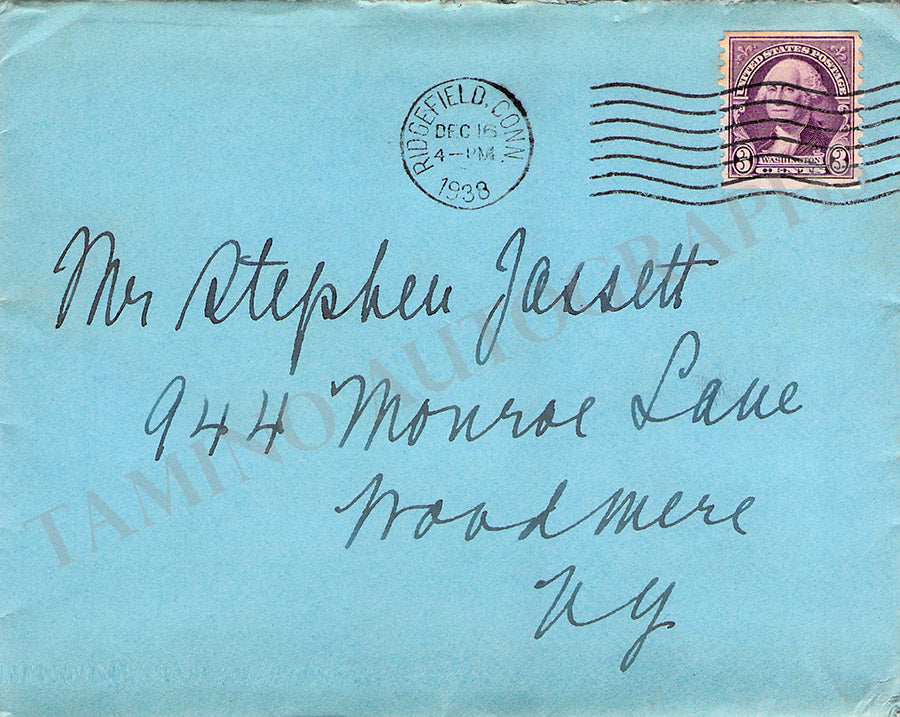 RIDGEFIELD, CONN
DEC 16
4-PM
1938
UNITED STATES POSTAGE
3 WASHINGTON 3
CENTS
Mr Stephen Jassett
944 Monroe Lane
Woodmere
NY
TAMINO AUTOGRAPHS